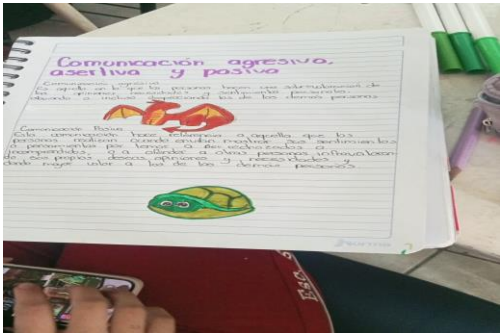 Comunicación agresiva,
asertiva y pasiva
Comunicación agresiva
Es aquella en la que las personas hacen una sobrevaloración de
las opiniones y sentimientos personales,
o incluso despreciando los de los demás personas
Comunicación Pasiva
Esta comunicación hace referencia a aquella que las
personas realizan cuando evitan mostrar sus sentimientos
o pensamientos por temor a ser rechazados o
incomprendidos, o a ofender a otras personas infravaloran
de sus propios deseos, opiniones y necesidades y
dando mayor valor a las de los demás personas.
norma